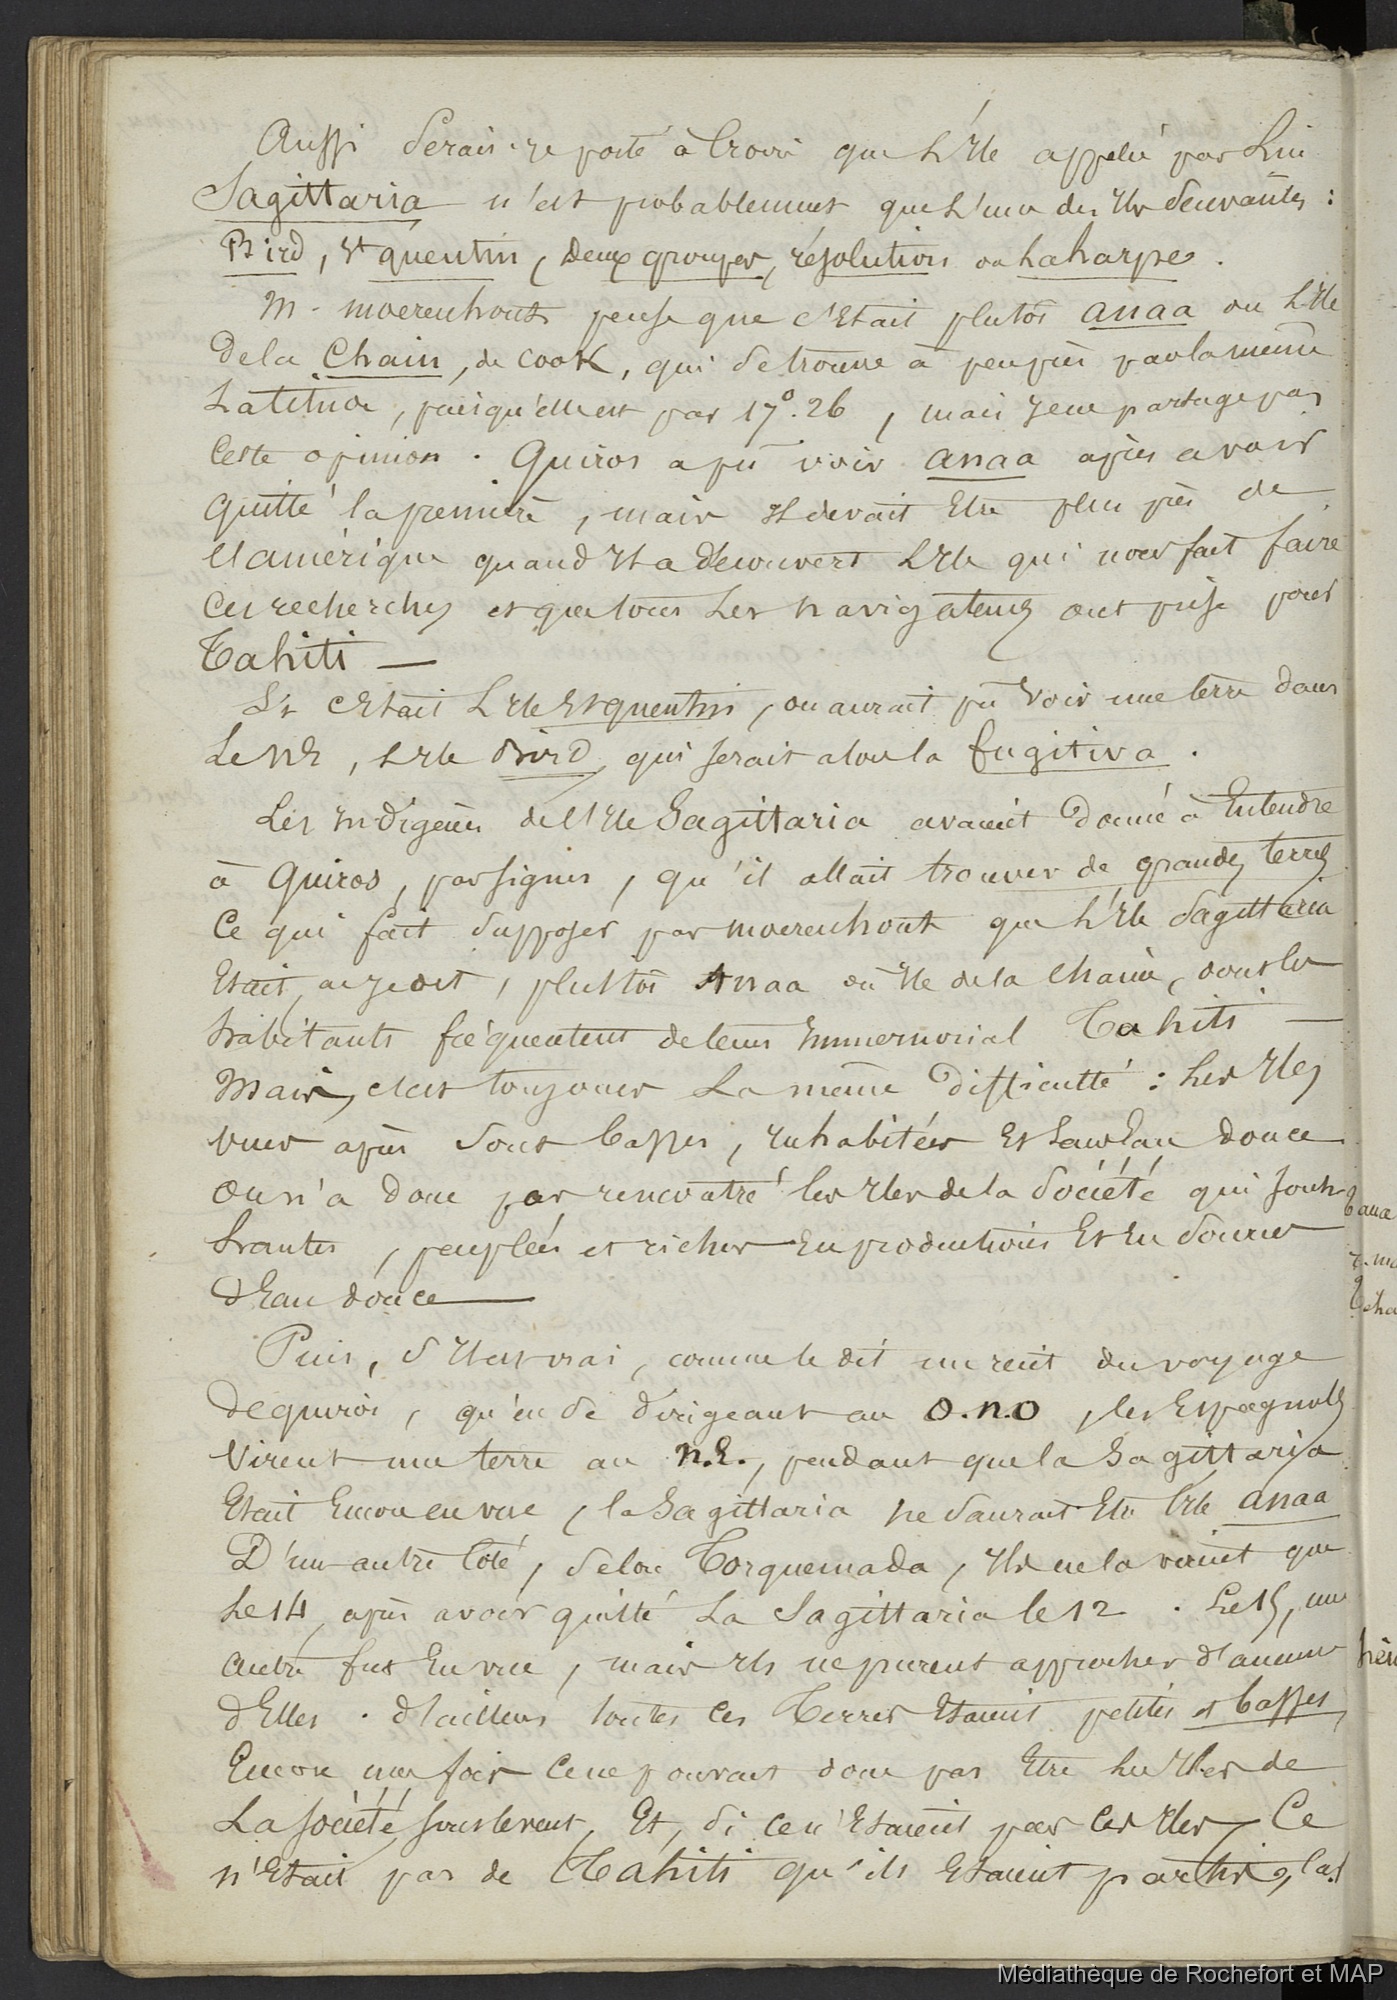 Aussi serais-je porté à croire que l'Ile appelée par lui
Sagittaria n'est probablement que l'une des Iles suivantes :
Bird, St quentin, deux groupes, résolution ou Laharpe.
M. moerenhout pense que c'Etait plutôt anaa ou l'Ile
de la Chain, de cook, qui se trouve à peu près par la même
Latitude, puisqu'elle est par 17°.26, mais je ne partage pas
Cette opinion. Quiros a pu voir anaa après avoir
quitté la première, mais Il devait Etre plus près de
l'amérique quand Il a découvert l'Ile qui nous fait faire
Ces recherches et que tous les navigateurs ont prise pour
Tahiti —
Si c'Etait l'Ile St quentin, on aurait pu voir une terre dans
Le NE, l'Ile Bird, qui serait alors la fugitiva.
Les Indigènes de l'Ile Sagittaria avaient donné à Entendre
à Quiros, par signes, qu'il allait trouver de grandes terres
Ce qui fait supposer par moerenhout que l'Ile Sagittaria
Etait, ai je dit, plutôt Anaa ou Ile de la Chaine, dont les
habitants fréquentent de tems Immémorial Tahiti —
Mais, c'est toujours la même difficulté : les Iles
vues après sont basses, Inhabitées Et sans Eau douce
On n'a donc pas rencontré les Iles de la Société qui sont
hautes, peuplées et riches En productions Et En sources
d'Eau douce —
Puis, s'Il est vrai, comme le dit un récit du voyage
de quiros, qu'en se dirigeant au O.N.O, les Espagnols
Virent une terre au N.E., pendant que la Sagittaria
Etait Encore en vue, la Sagittaria ne saurait Etre l'Ile anaa
D'un autre Coté, selon Torquemada, Ils ne la virent que
le 14, après avoir quitté la Sagittaria le 12. Le 15, une
autre fut En vue, mais Ils ne purent approcher d'aucune
d'Elles. d'ailleurs toutes ces Terres Etaient petites et basses
Encore une fois Ce ne pouvait donc pas Etre les Iles de
La société sous le vent, Et, si ce n'Etaient pas ces Iles, Ce
n'Etait pas de Tahiti qu'ils Etaient partis, car
Médiathèque de Rochefort et MAP